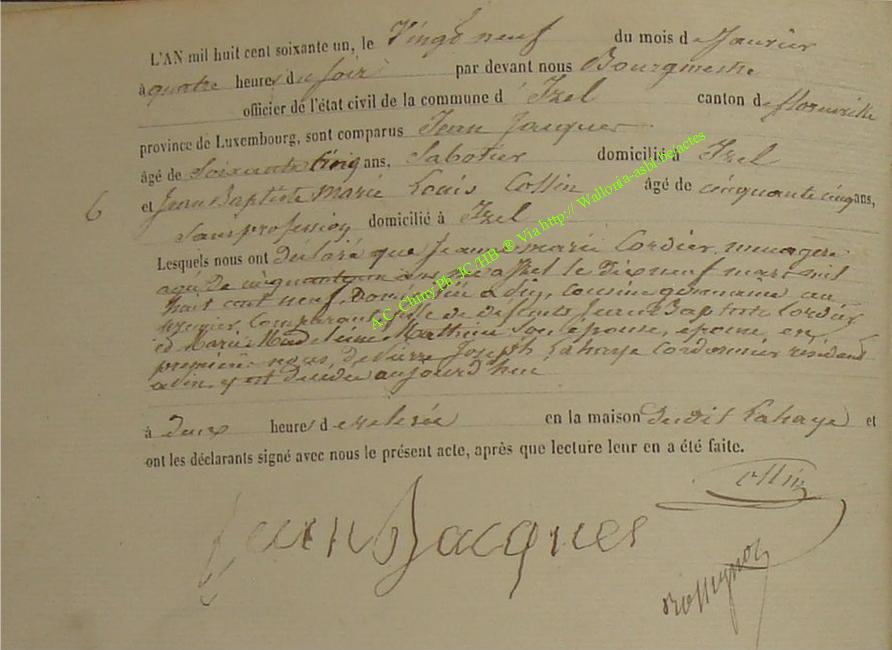 L'AN mil huit cent soixante un, le Vingt neuf du mois d e Janvier
à quatre heures du soir par devant nous Bourgmestre
officier de l'état civil de la commune d' Izel canton de florenville
province de Luxembourg, sont comparus Jean Jacques
âgé de Soixante Cinq ans, Sabotier domicilié à Izel
6 et Jean Baptiste Marie Louis Collin âgé de cinquante cinq ans,
Sans profession domicilié à Izel
Lesquels nous ont déclaré que Jeanne marie Cordier, menagere
agée de cinquante un ans née à Izel le Dix neuf mars mil
huit cent neuf, Domiciliée à Pin, cousine germaine au
premier Comparant, fille de defunts Jean Baptiste Cordier
et Marie Madeleine Mathieu Son épouse, épouse en
premières noces de Pierre Joseph Lahaye Cordonnier résidant
à Pin y est décédée aujourd'hui
à deux heures de relevée en la maison dudit Lahaye et
ont les déclarants signé avec nous le présent acte, après que lecture leur en a été faite.
Collin
Jean Jacques
Rossignon
A.C. Chiny Ph. JC/HB ® Via http:// Wallonia-asbl be/actes